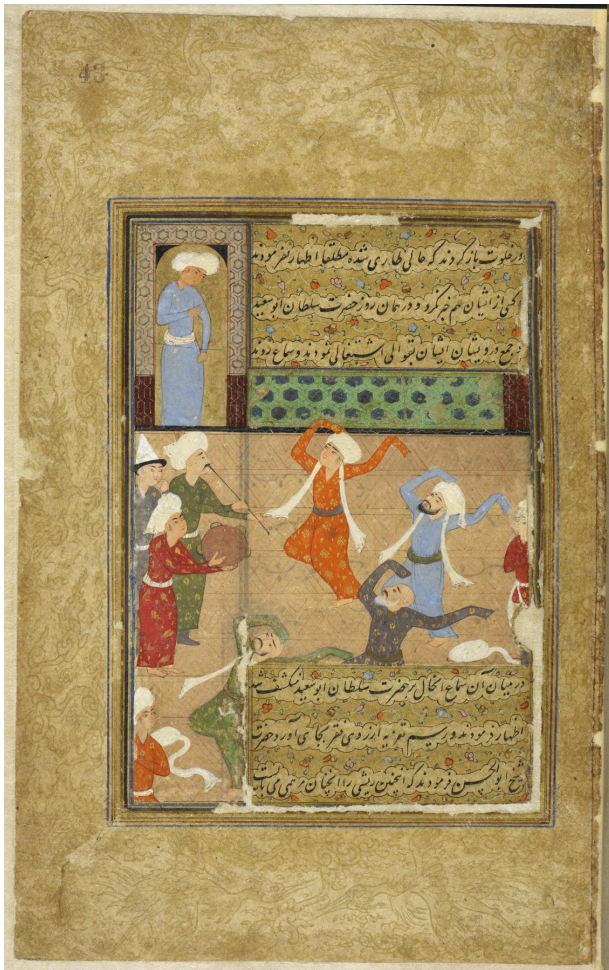 43
در خلوت باز کردند که حالی طاری شده مطلقا اظهار نفرمودند
کسی از ایشان هم خبر نکرد و در همان روز حضرت سلطان ابوسعید
و جمع درویشان ایشان بقوالی اشتغالی نمودند و سماع زدند
در میان آن سماع انحال بر حضرت سلطان ابوسعید منکشف شد
اظهار فرمودند و رسیم تعزیه ارزوی فقر بجای آورد حضرت
شیخ ابوالحسن فرمودند که اینچنین ریشی را انچنان مرهمی می بایست